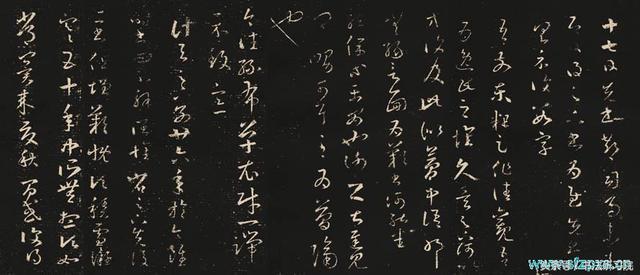 十七日先書郗司馬未去即
日得足下書為慰先書以具
示復數字
吾前東粗足作佳觀吾
為逸民之懷久矣足下何以
方復及此似夢中語耶無
緣言面為歎書何能悉
龍保等平安也謝之甚遲見
卿舅可耳至為簡隔
也
今往絲布單衣財一端
示致意
計與足下別廿六年於今雖
時書問不解闊懷省足下先後
二書但增歎慨頃積雪凝
寒五十年中所無想頃如
常冀來夏秋間或復得